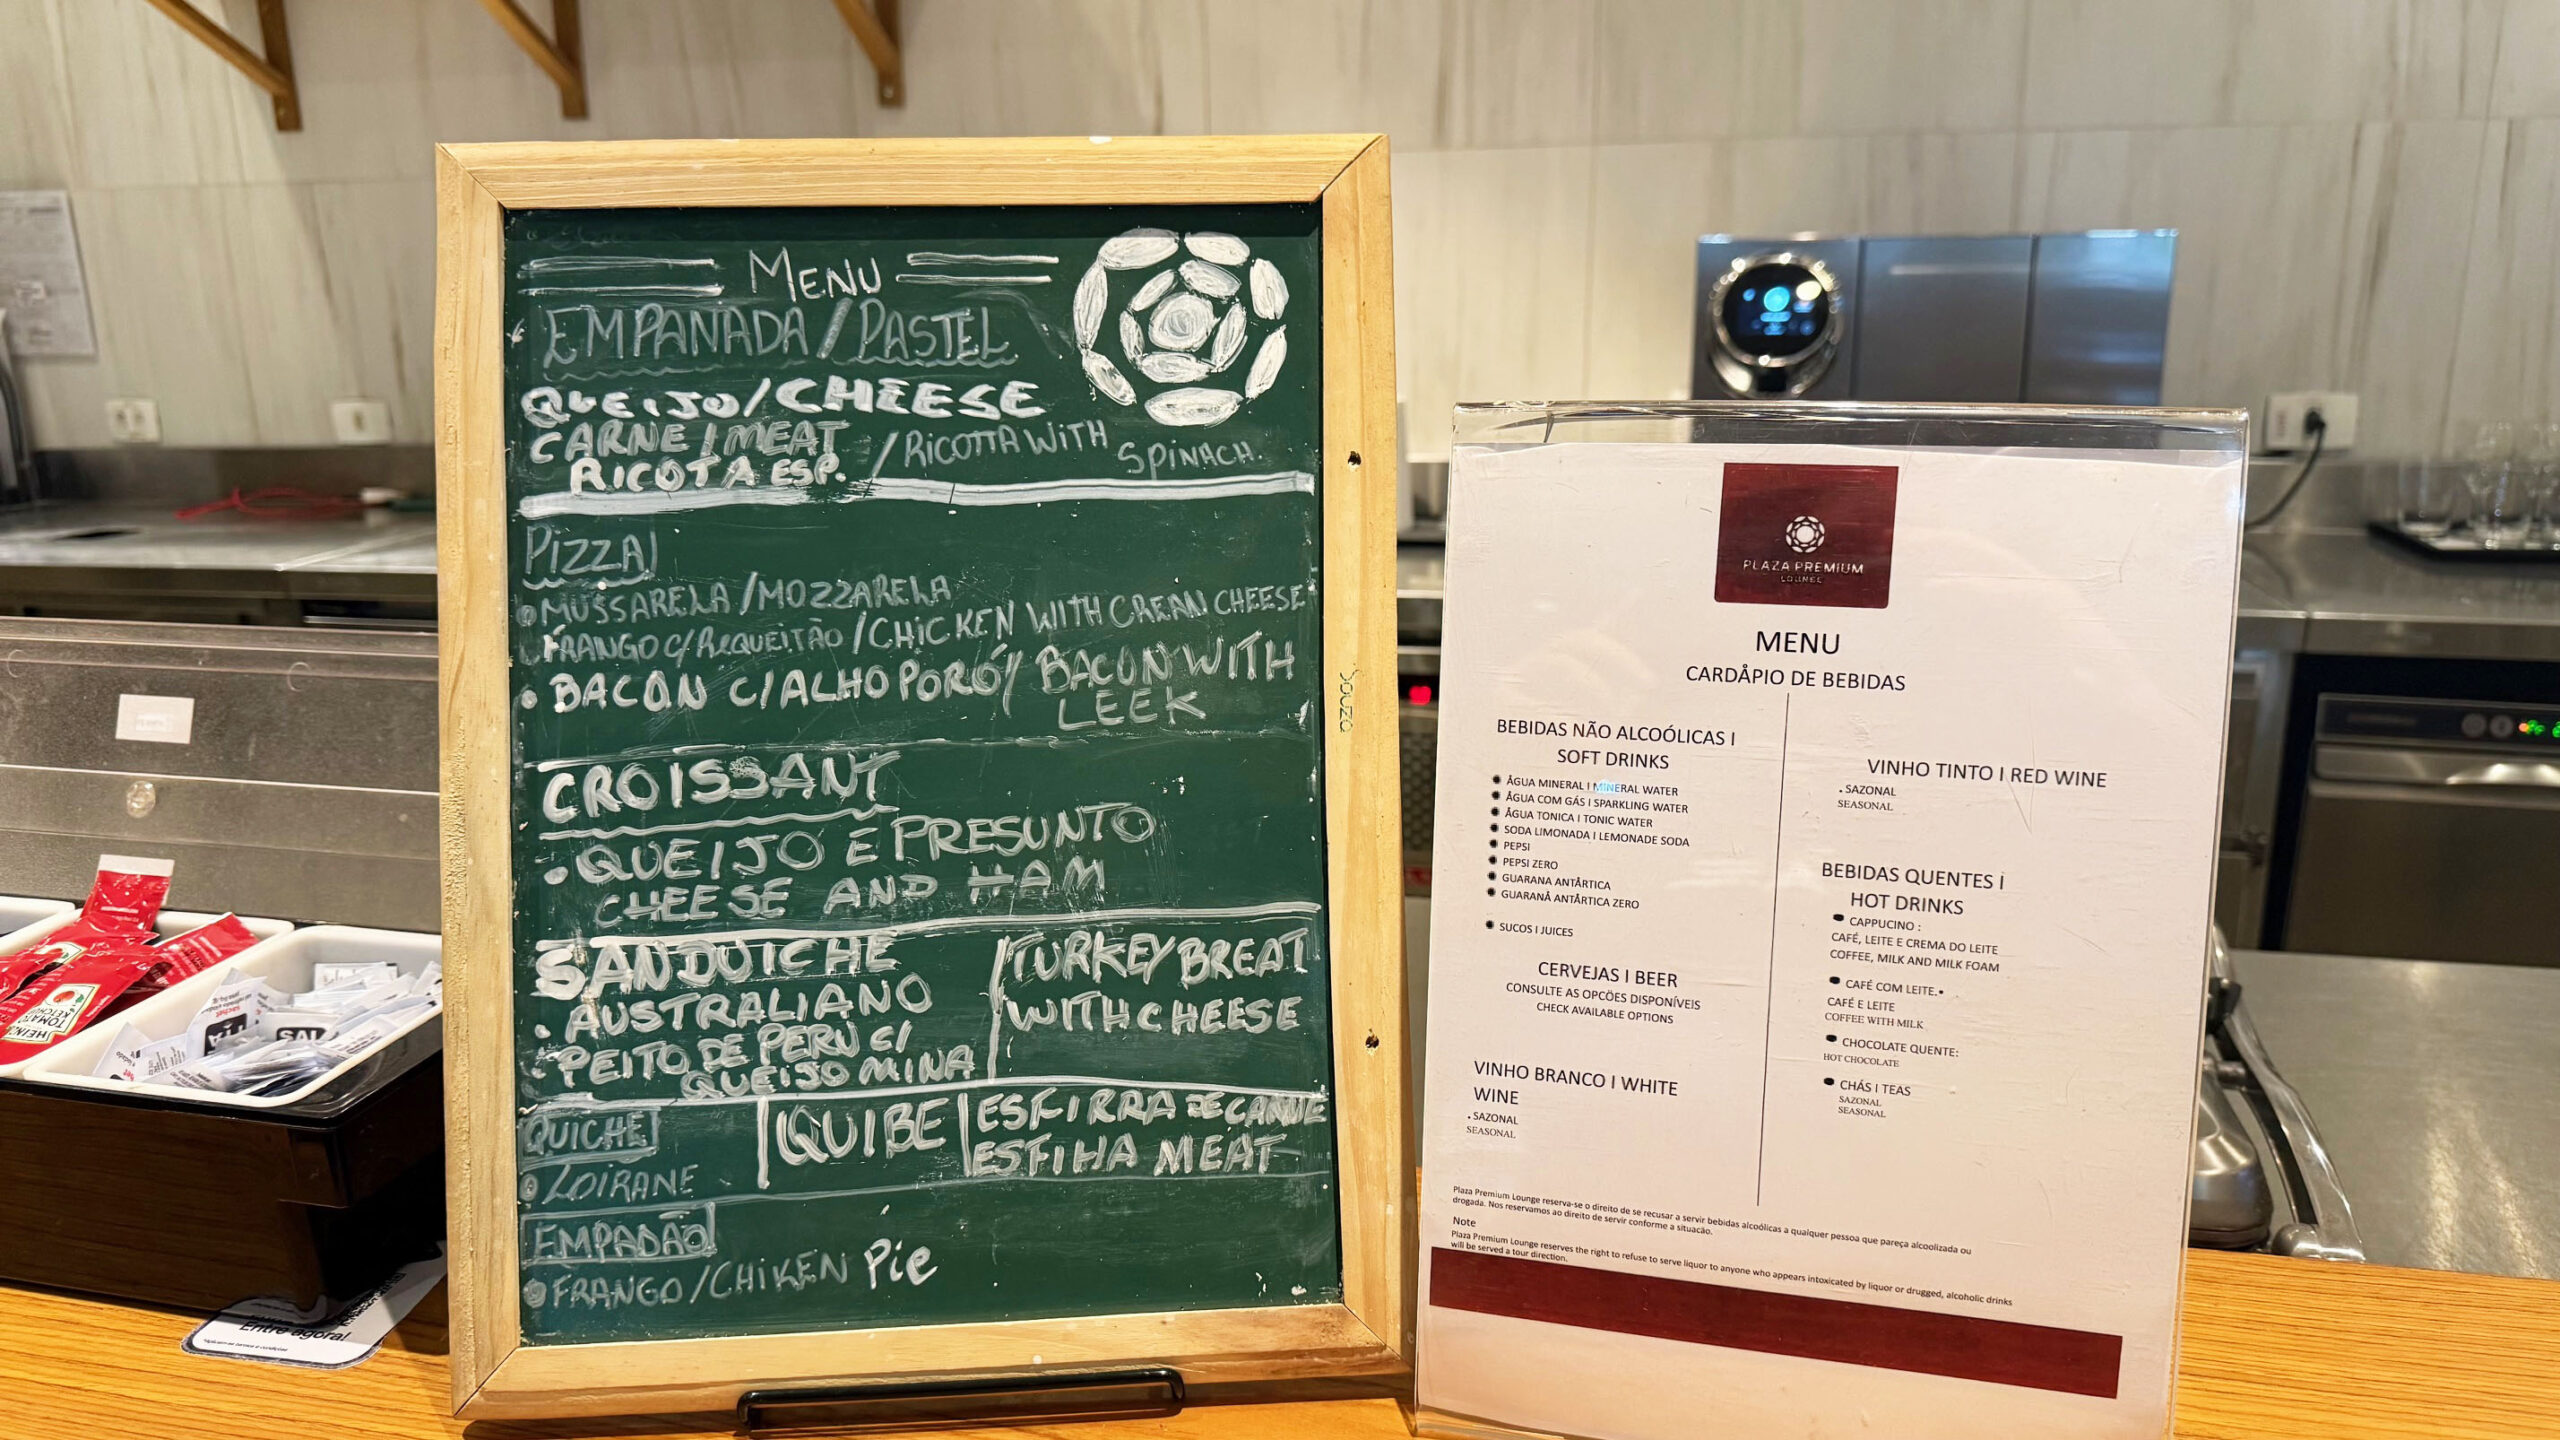 MENU
EMPANADA/PASTEL
QUEIJO/CHEESE
CARNE/MEAT
RICOTA ESP. / RICOTTA WITH SPINACH.
PIZZA
MUSSARELA/MOZZARELA
FRANGO C/REQUEITÃO/CHICKEN WITH CREAN CHEESE
• BACON C/ALHO PORÓ/ BACON WITH
LEEK
CROISSANT
• QUEIJO E PRESUNTO
CHEESE AND HAM
SANDUICHE
• AUSTRALIANO
• PEITO DE PERU C/
QUEIJO MINA
TURKEY BREAT
WITH CHEESE
QUICHE
LOIRANE
QUIBE
ESFIRRA DE CARNE
ESFIHA MEAT
EMPADÃO
FRANGO/CHIKEN Pie
SOUZA
PLAZA PREMIUM
LOUNGE
MENU
CARDÅPIO DE BEBIDAS
BEBIDAS NÃO ALCOÓLICAS I
SOFT DRINKS
ÅGUA MINERAL I MINERAL WATER
ÅGUA COM GÁS I SPARKLING WATER
ÅGUA TONICA I TONIC WATER
SODA LIMONADA I LEMONADE SODA
PEPSI
PEPSI ZERO
GUARANA ANTÅRTICA
GUARANÅ ANTÅRTICA ZERO
SUCOS I JUICES
CERVEJAS I BEER
CONSULTE AS OPCÖES DISPONÍVEIS
CHECK AVAILABLE OPTIONS
VINHO BRANCO I WHITE
WINE
. SAZONAL
SEASONAL
VINHO TINTO I RED WINE
. SAZONAL
SEASONAL
BEBIDAS QUENTES I
HOT DRINKS
CAPPUCINO :
CAFÉ, LEITE E CREMA DO LEITE
COFFEE, MILK AND MILK FOAM
CAFÉ COM LEITE.•
CAFÉ E LEITE
COFFEE WITH MILK
CHOCOLATE QUENTE:
HOT CHOCOLATE
CHÁS I TEAS
SAZONAL
SEASONAL
Plaza Premium Lounge reserva-se o direito de se recusar a servir bebidas alcoólicas a qualquer pessoa que pareça alcoolizada ou
drogada. Nos reservamos ao direito de servir conforme a situacão.
Note
Plaza Premium Lounge reserves the right to refuse to serve liquor to anyone who appears intoxicated by liquor or drugged, alcoholic drinks
will be served a tour direction.
HEINZ
TOMATO
KETCHUP
SAL
Entre agora!